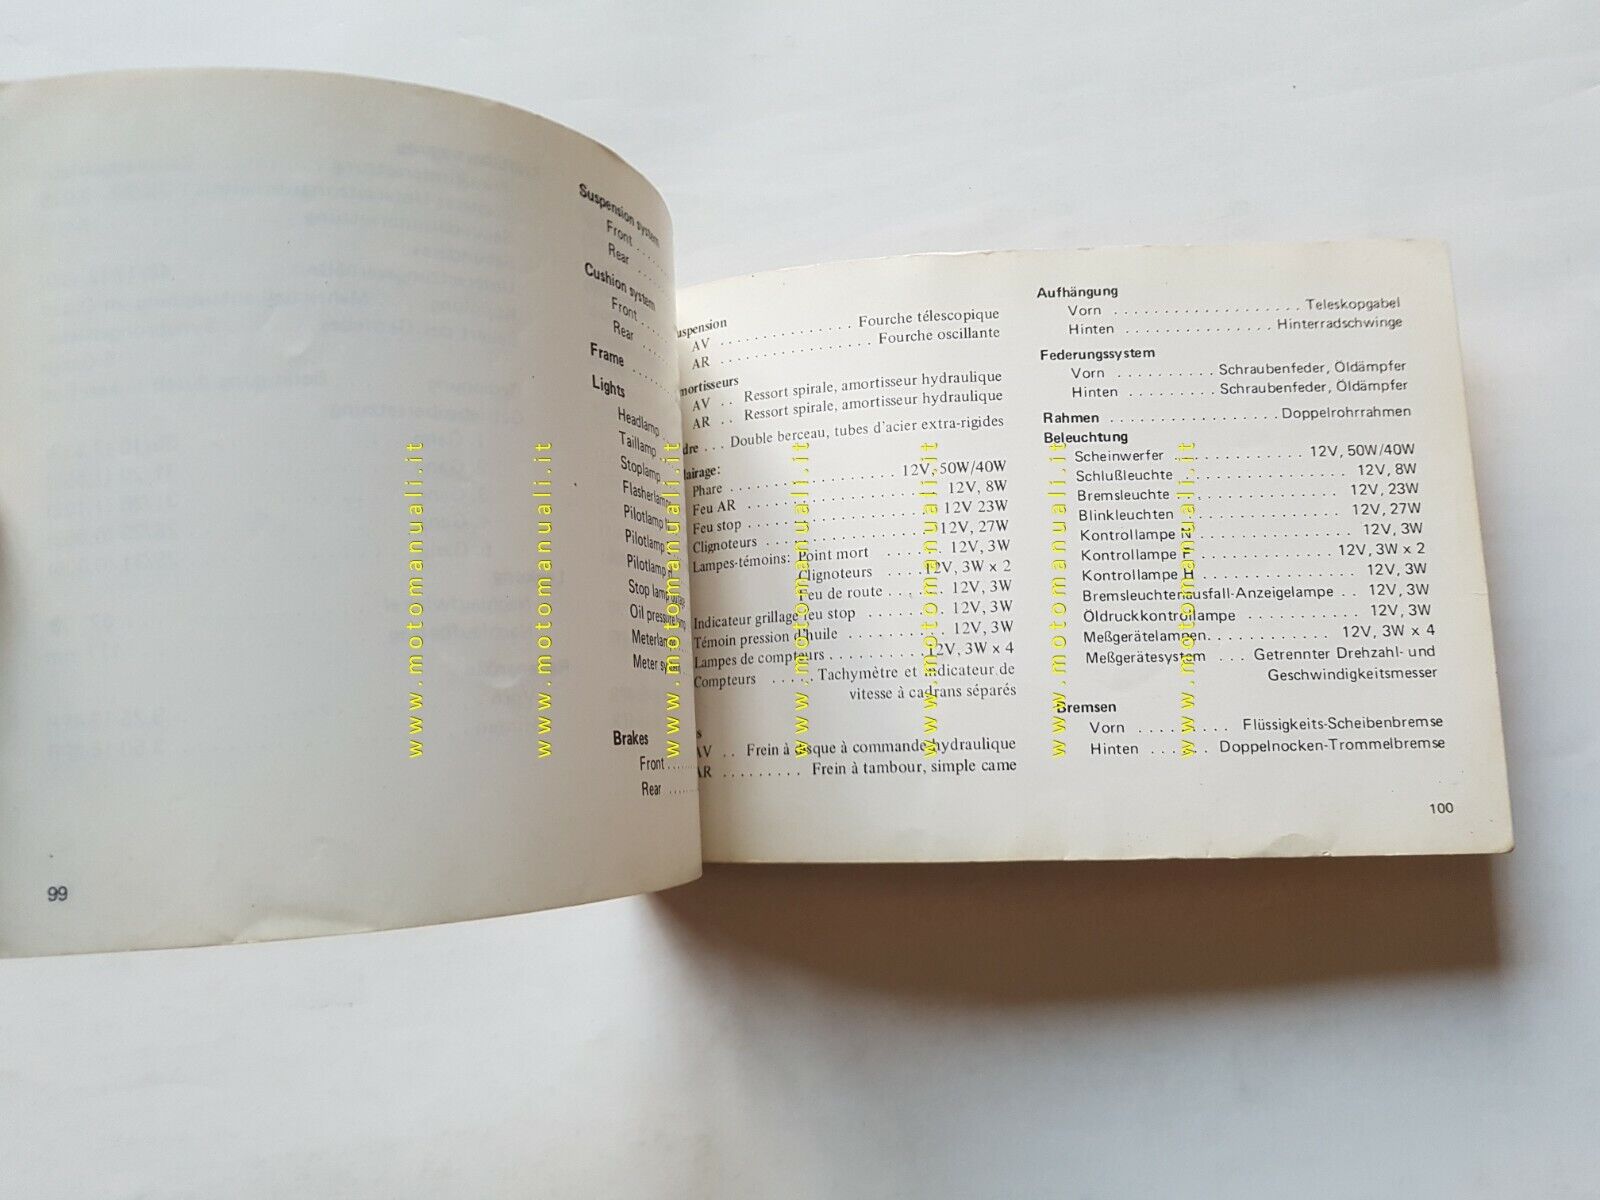 Suspension system
Front . . . . .
Rear . . . . .
Cushion system
Front . . . .
Rear . . . . .
Frame . . . . . .
Lights
Headlamp . .
Taillamp . . .
Stoplamp . . .
Pilotlamp
Pilotlamp
Pilotlamp
Stop lamp
Oil pressure
Brakes
Front . . . . . .
Rear . . . . . .
99
AV . . . . . . . . . . . . . . Fourche télescopique
AR . . . . . . . . . . . . . . . . Fourche oscillante
AV . . Ressort spirale, amortisseur hydraulique
AR . . Ressort spirale, amortisseur hydraulique
. . . Double berceau, tubes d'acier extra-rigides
Phare . . . . . . . . . . . . . . . . . 12V, 50W/40W
Feu AR . . . . . . . . . . . . . . . . . . . 12V, 8W
Feu stop . . . . . . . . . . . . . . . . . . 12V 23W
Clignoteurs . . . . . . . . . . . . . . . . 12V, 27W
Lampes-témoins: Point mort . . . . . . 12V, 3W
Clignoteurs . . . . 12V, 3W × 2
Feu de route . . . . . 12V, 3W
Indicateur grillage feu stop . . . . . . . 12V, 3W
Témoin pression d'huile . . . . . . . . . 12V, 3W
Lampes de compteurs . . . . . . . . . . 12V, 3W × 4
Compteurs . . . . . Tachymètre et indicateur de
vitesse à cadrans séparés
AV . . Frein à disque à commande hydraulique
AR . . . . . . . . . Frein à tambour, simple came
Aufhängung
Vorn . . . . . . . . . . . . . . . . . . . Teleskopgabel
Hinten . . . . . . . . . . . . . . . Hinterradschwinge
Federungssystem
Vorn . . . . . . . . . . Schraubenfeder, Öldämpfer
Hinten . . . . . . . . . Schraubenfeder, Öldämpfer
Rahmen . . . . . . . . . . . . . . . . . . Doppelrohrrahmen
Beleuchtung
Scheinwerfer . . . . . . . . . . . . . 12V, 50W/40W
Schlußleuchte . . . . . . . . . . . . . . . . . 12V, 8W
Bremsleuchte . . . . . . . . . . . . . . . . . 12V, 23W
Blinkleuchten . . . . . . . . . . . . . . . . . 12V, 27W
Kontrollampe N . . . . . . . . . . . . . . . . 12V, 3W
Kontrollampe F . . . . . . . . . . . . . . 12V, 3W x 2
Kontrollampe H . . . . . . . . . . . . . . . . 12V, 3W
Bremsleuchtenausfall-Anzeigelampe . . 12V, 3W
Öldruckkontrollampe . . . . . . . . . . . . 12V, 3W
Meßgerätelampen. . . . . . . . . . . . . 12V, 3W x 4
Meßgerätesystem . . . Getrennter Drehzahl- und
Geschwindigkeitsmesser
Bremsen
Vorn . . . . . . . . . Flüssigkeits-Scheibenbremse
Hinten . . . . . . Doppelnocken-Trommelbremse
100
www.motomanuali.it
www.motomanuali.it
www.motomanuali.it
www.motomanuali.it
www.motomanuali.it
www.motomanuali.it
www.motomanuali.it